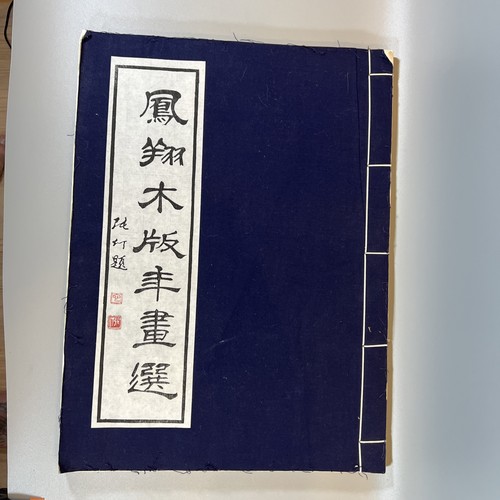 鳳翔木版年畫選
張仃題